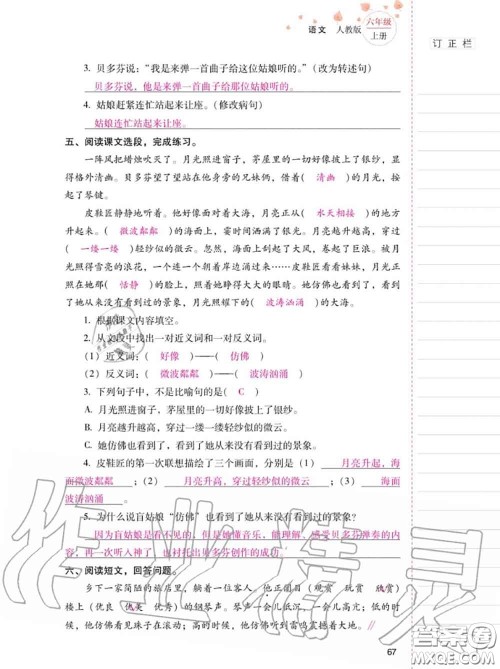 语文 人教版 六年级上册
订正栏
3. 贝多芬说：“我是来弹一首曲子给这位姑娘听的。”（改为转述句）
贝多芬说，他是来弹一首曲子给那位姑娘听的。
4. 姑娘赶紧连忙站起来让座。（修改病句）
姑娘连忙站起来让座。
五、阅读课文选段，完成练习。
一阵风把蜡烛吹灭了。月光照进窗子，茅屋里的一切好像披上了银纱，显
得格外清幽。贝多芬望了望站在他身旁的兄妹俩，借着（ 清幽 ）的月光，按
起了琴键。
皮鞋匠静静地听着。他好像面对着大海，月亮正从（ 水天相接 ）的地方
升起来。（ 微波粼粼 ）的海面上，霎时间洒满了银光。月亮越升越高，穿过
（ 一缕一缕 ）轻纱似的微云。忽然，海面上刮起了大风，卷起了巨浪。被月
光照得雪亮的浪花，一个连一个朝着岸边涌过来……皮鞋匠看看妹妹，月光正
照在她那（ 恬静 ）的脸上，照着她睁得大大的眼睛。她仿佛也看到了，看到
了她从来没有看到过的景象，月光照耀下的（ 波涛汹涌 ）的大海。
1. 根据课文内容填空。
2. 从文段中找出一对近义词和一对反义词。
（1）近义词：（ 好像 ）——（ 仿佛 ）
（2）反义词：（ 微波粼粼 ）——（ 波涛汹涌 ）
3. 下列句子中，不是比喻句的是（ C ）
A. 月光照进窗子，茅屋里的一切好像披上了银纱。
B. 月亮越升越高，穿过一缕一缕轻纱似的微云。
C. 她仿佛也看到了，看到了她从来没有看到过的景象。
4. 皮鞋匠的第一次联想描写了三个画面，分别是（1） 月亮升起，海
面微波粼粼；（2） 月亮升高，穿过轻纱似的微云；（3） 海面
波涛汹涌。
5. 为什么说盲姑娘“仿佛”也看到了她从来没有看到过的景象？
因为盲姑娘是看不见的，但是她懂音乐，能理解、感受贝多芬弹奏的内
容，再一次听入神了，也衬托出贝多芬创作的成功。
六、阅读短文，回答问题。
乡下一家简陋的旅店里，躺着一位客人，他正在（观赏 玩赏 欣赏）
楼上（优良 优美 优秀）的钢琴声。琴声一会儿低沉、忧郁，一会儿
然像鹅卵石在滚动；高的时候，他仿佛听到雷鸣震撼着大地……
67
作业精灵
答案圈
MXQE.COM